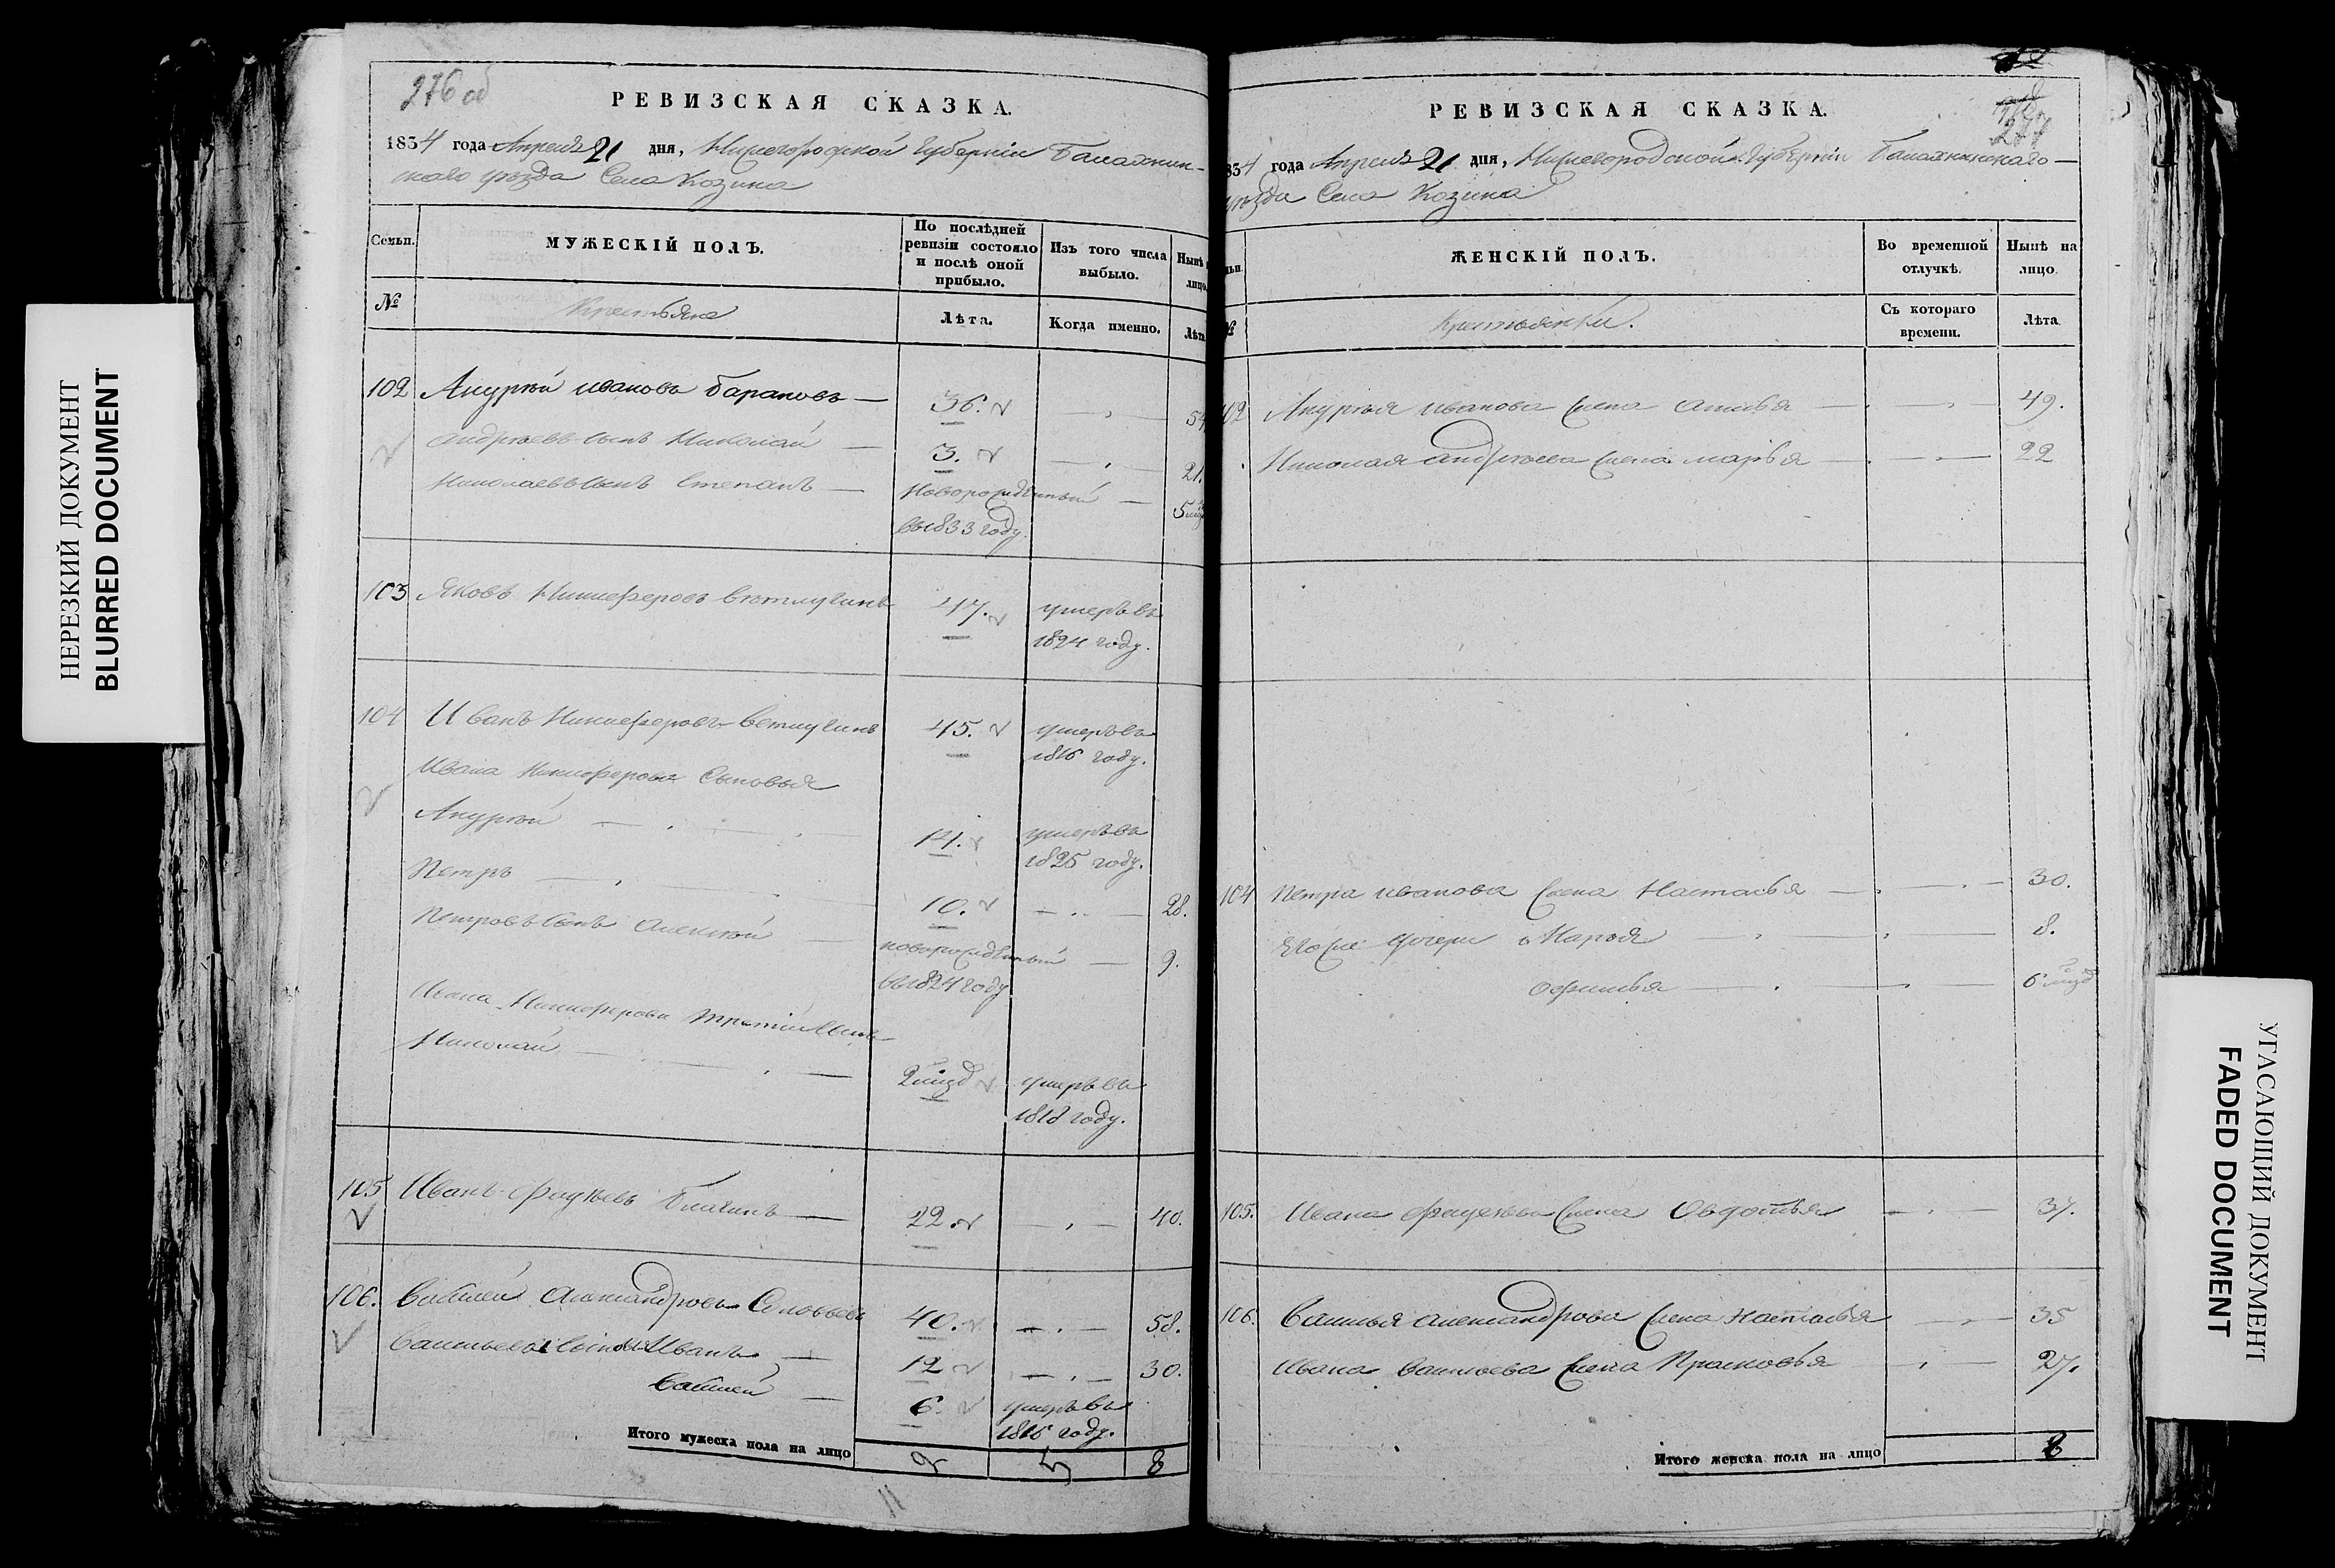 НЕРЕЗКИЙ ДОКУМЕНТ
BLURRED DOCUMENT
276 об
РЕВИЗСКАЯ СКАЗКА.
1834 года Апреля 21 дня, Нижегородской Губернiи Балахнин-
скаго уѣзда Села Козина
Семьи.
МУЖЕСКIЙ ПОЛЪ.
По послѣдней ревизiи состояло и послѣ оной прибыло.
Изъ того числа выбыло.
Нынѣ
лицо.
№
Крестьяне
Лѣта.
Когда именно.
Лѣта
102 Андрѣй Ивановъ Барановъ — 36. 54
Андрѣевъ сынъ Николай — 3. 21.
Николаевъ сынъ Степанъ — Новорожденный —
въ 1833 году
103 Яковъ Никиферовъ Ветлугинъ 47. умеръ въ
1824 году.
104 Иванъ Никиферовъ Ветлугинъ 45. умеръ въ
1816 году.
Ивана Никиферова Сыновья
Андрѣй 14. умеръ въ
1825 году.
Петръ 10. 28.
Петровъ сынъ Алексѣй — новорожденный — 9.
въ 1824 году
Ивана Никиферова третiй сынъ
Николай
умеръ въ
1818 году.
105 Иванъ 22 40.
106. Василей Александровъ Соловьевъ 40. 58.
Васильевы сыновья Иванъ 12 30.
Василей 6. умеръ въ
1816 году.
Итого мужеска пола на лицо 9 5 8
277
РЕВИЗСКАЯ СКАЗКА.
834 года Апреля 21 дня, Нижегородской Губернiи Балахнинскаго —
уѣзда Села Козина
ЖЕНСКIЙ ПОЛЪ.
Во временной отлучкѣ.
Нынѣ на лицо.
№
Крестьянки.
Съ котораго времени.
Лѣта
102 Андрѣя Иванова жена 49.
Николая Андрѣева жена Марья 22
104 Петра Иванова жена Настасья 30.
Его же дочери Марья 8.
Офимья
105. Ивана жена Овдотья 37.
106. Василья Александрова жена Настасья 35
Ивана Васильева жена Прасковья 27.
Итого женска пола на лицо 8
УГАСАЮЩИЙ ДОКУМЕНТ
FADED DOCUMENT